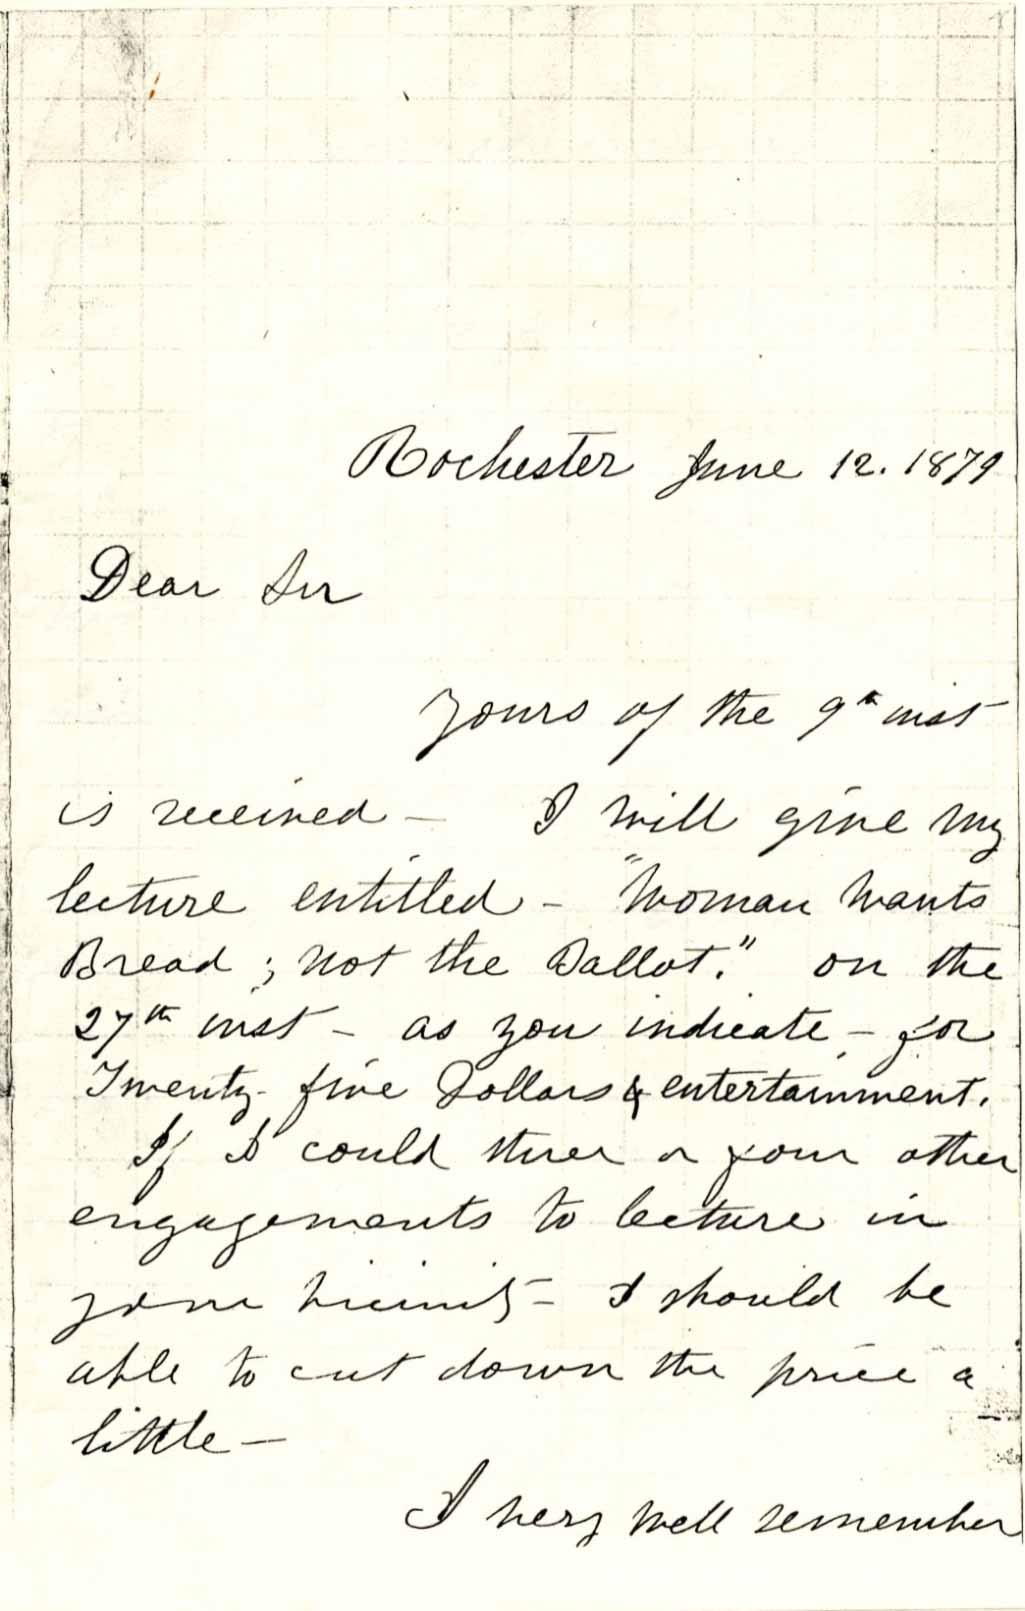 Rochester June 12. 1879
Dear Sir
Yours of the 9th inst
is received — I will give my
lecture entitled — "Woman Wants
Bread; not the Ballot." on the
27th inst — as you indicate — for
Twenty-five Dollars & entertainment.
If I could three or four other
engagements to lecture in
your vicinity — I should be
able to cut down the price a
little —
I very well remember